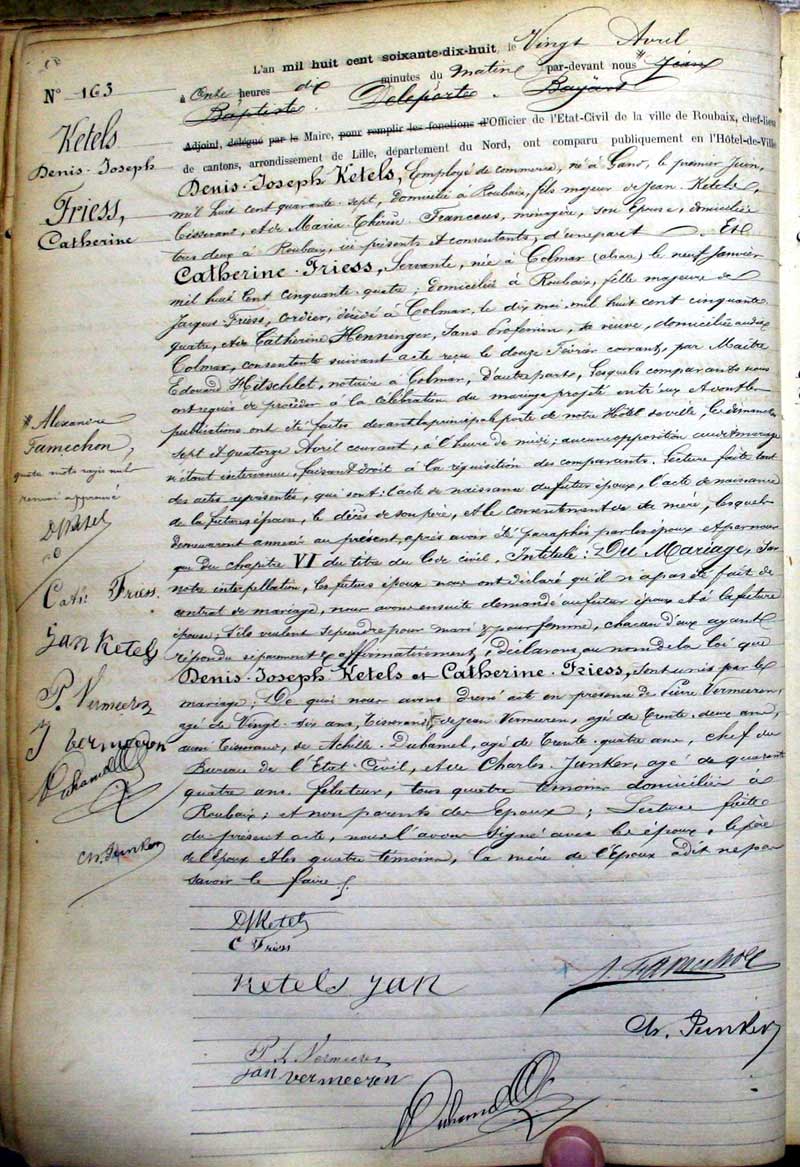 L'an mil huit cent soixante-dix-huit, le Vingt Avril
N° 163 à Onze heures dix minutes du matin par-devant nous Jean
Baptiste Deleporte Bayart
Ketels
Denis-Joseph
Friess,
Catherine
Adjoint, délégué par le Maire, pour remplir les fonctions d'Officier de l'Etat-Civil de la ville de Roubaix, chef-lieu
de cantons, arrondissement de Lille, département du Nord, ont comparu publiquement en l'Hôtel-de-Ville
Denis-Joseph Ketels, Employé de commerce, né à Gand, le premier Juin,
mil huit cent quarante-sept, domicilié à Roubaix, fils majeur de Jean Ketels,
tisserand, et de Marie Thérèse Francous, ménagère, son épouse, domiciliés
tous deux à Roubaix, ici présents et consentents, d'une part. Et
Catherine Friess, Servante, née à Colmar (alsace) le neuf Janvier
mil huit cent cinquante quatre, domiciliée à Roubaix, fille majeure de
Jacques Friess, cordier, décédé à Colmar, le dix mai mil huit cent cinquante
quatre, et de Catherine Henninger, sans profession, sa veuve, domiciliée audit
Colmar, consentente suivant acte reçu le douze Février courant, par Maître
Edouard Hitschlet, notaire à Colmar, d'autre part, lesquels comparants nous
ont requis de procéder à la célébration du mariage projeté entr'eux et dont les
publications ont été faites devant la principale porte de notre Hôtel de ville, les dimanches
sept et quatorze Avril courant, à l'heure de midi; aucune opposition audit mariage
n'étant intervenue, faisant droit à la réquisition des comparants. Lecture faite tant
des actes représentés, qui sont: l'acte de naissance du futur époux, l'acte de naissance
de la future épouse, le décès de son père, et le consentement de sa mère, lesquels
demeurent annexés au présent, après avoir été paraphés par les époux et par nous
que du chapitre VI du titre du Code civil, Intitulé: Du Mariage, sur
notre interpellation, les futurs époux nous ont déclaré qu'il n'a pas été fait de
contrat de mariage, nous avons ensuite demandé au futur époux et à la future
épouse, s'ils veulent se prendre pour mari & pour femme, chacun d'eux ayant
répondu séparément & affirmativement, déclarons, au nom de la loi que
Denis-Joseph Ketels et Catherine Friess, sont unis par le
mariage; De quoi nous avons dressé acte en présence de Pierre Vermeeren,
agé de Vingt-six ans, Tisserand, de Jean Vermeeren, agé de Trente-deux ans,
aussi Tisserand, de Achille Duhamel, agé de Trente-quatre ans, chef du
Bureau de l'Etat Civil, et de Charles Junker, agé de quarante
quatre ans, filateur, tous quatre témoins domiciliés à
Roubaix; et non parents des Epoux; Lecture faite
du présent acte, nous l'avons signé avec les époux, le père
de l'époux et les quatre témoins, la mère de l'Epoux a dit ne pas
savoir le faire.
* Alexandre
Famechon,
quatre mots rayés nuls
renvoi approuvé
D Ketels
Cath. Friess.
Jan Ketels
P. Vermeeren
J Vermeeren
Duhamel
Ch. Junker
D Ketels
C Friess
Ketels Jan
A. Famechon
Ch. Junker
P. Vermeeren
Jan vermeeren
Duhamel